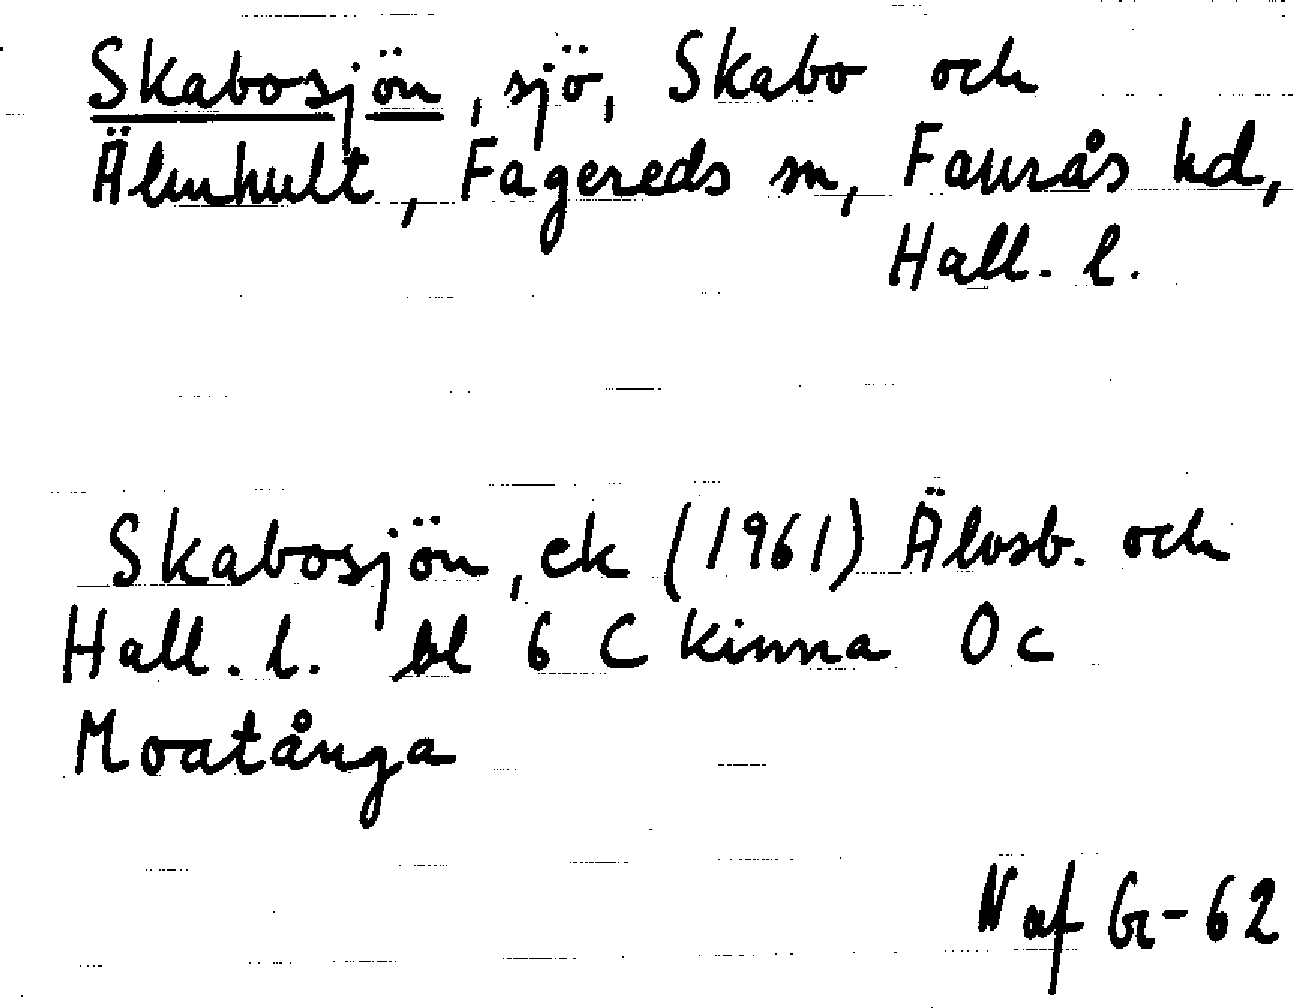 Skabosjön, sjö, Skabo och
Älmhult, Fagereds sn, Faurås hd,
Hall. l.
Skabosjön, ek (1961) Älvsb. och
Hall. l. bl 6 C Kinna 0c
Moatånga
N af G-62